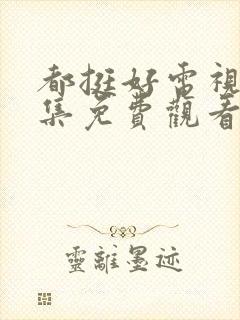 都挺好電視
集免費觀看
靈離墨迹